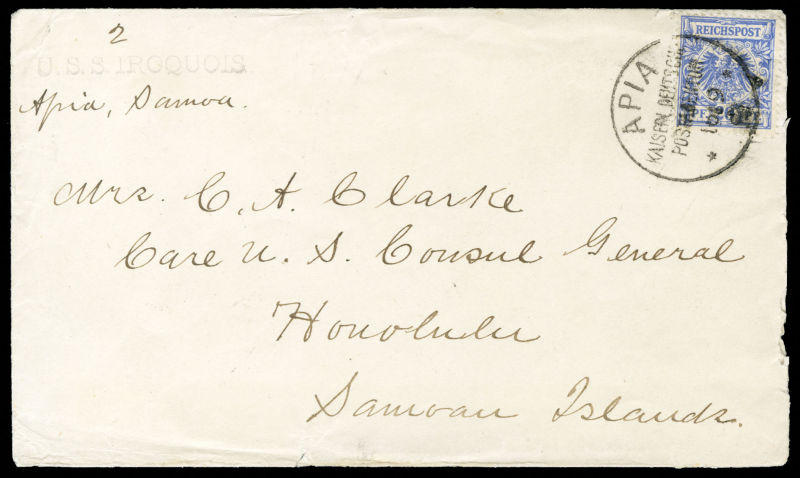 2
U.S.S. IROQUOIS
Apia, Samoa.
REICHSPOST
APIA
KAISERL. DEUTSCHE
Mrs. C. A. Clarke
Care U. S. Consul General
Honolulu
Samoan Islands.